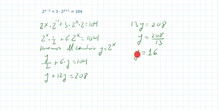 2ˣ⁻¹ + 3·2ˣ⁺¹ = 104
2ˣ·2⁻¹ + 3·2ˣ·2 = 104
2ˣ·1/2 + 6·2ˣ = 104
y = 2ˣ
y/2 + 6·y = 104
y + 12y = 208
13y = 208
y = 208/13
y = 16